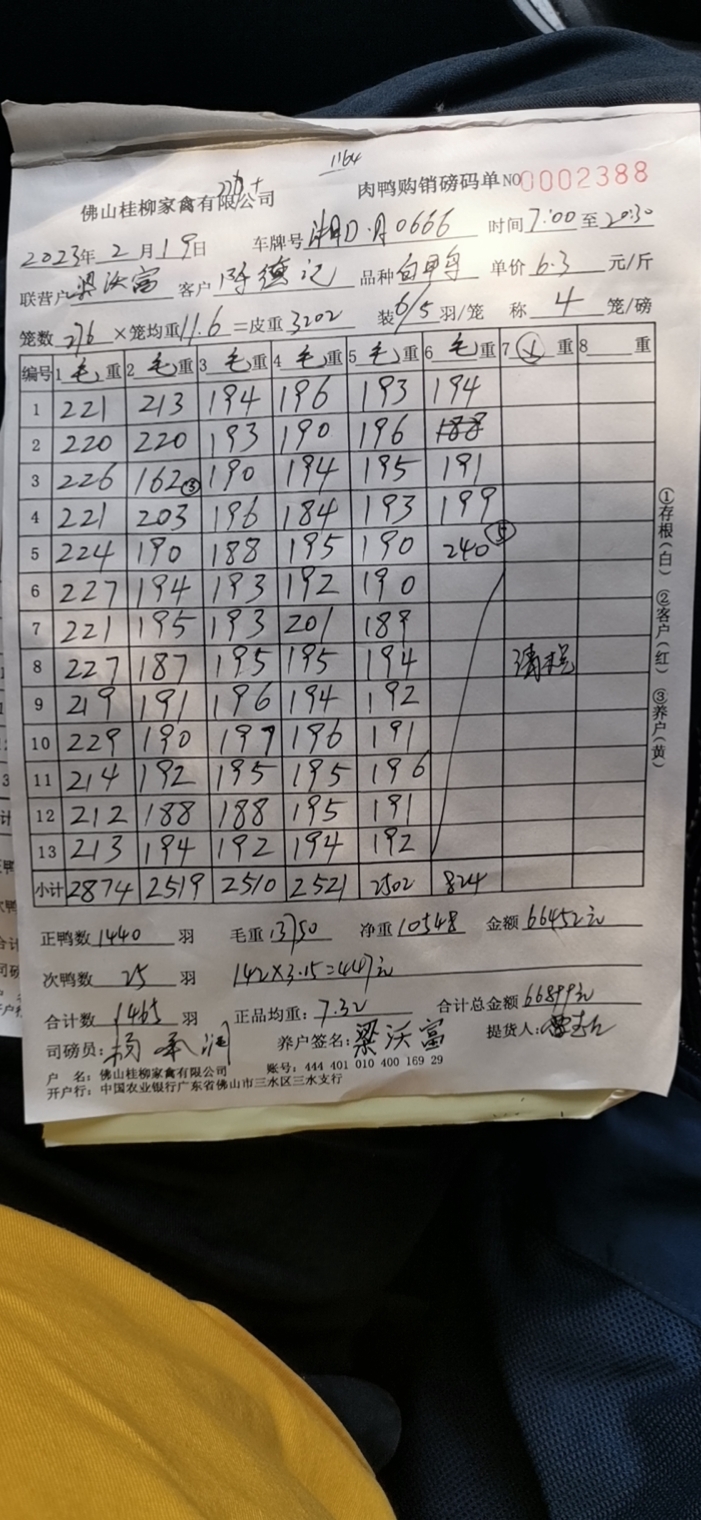 1164
276+
佛山桂柳家禽有限公司 肉鸭购销磅码单 NO 0002388
2023年 2月19日 车牌号 湘D·A0666 时间 7:00 至 20:30
联营户 梁沃富 客户 陈德记 品种 单价 6.3 元/斤
笼数 276 ×笼均重 11.6 =皮重 3202 装 6/5 羽/笼 称 4 笼/磅
编号 1 毛重 2 毛重 3 毛重 4 毛重 5 毛重 6 毛重 7 重 8 重
1 221 213 194 196 193 194
2 220 220 193 190 196 188
3 226 162③ 190 194 195 191
4 221 203 196 184 193 199
5 224 190 188 195 190 240⑤
6 227 194 193 192 190
7 221 195 193 201 189
8 227 187 195 195 194 清楚
9 219 191 196 194 192
10 229 190 197 196 191
11 214 192 195 195 196
12 212 188 188 195 191
13 213 194 192 194 192
小计 2874 2519 2510 2521 2502 824
①存根(白) ②客户(红) ③养户(黄)
正鸭数 1440 羽 毛重 13750 净重 10548 金额 66452元
次鸭数 25 羽 142×3.15=447元
合计数 1465 羽 正品均重: 7.32 合计总金额 66899元
司磅员: 杨承润 养户签名: 梁沃富 提货人:
户 名: 佛山桂柳家禽有限公司 账号: 444 401 010 400 169 29
开户行: 中国农业银行广东省佛山市三水区三水支行